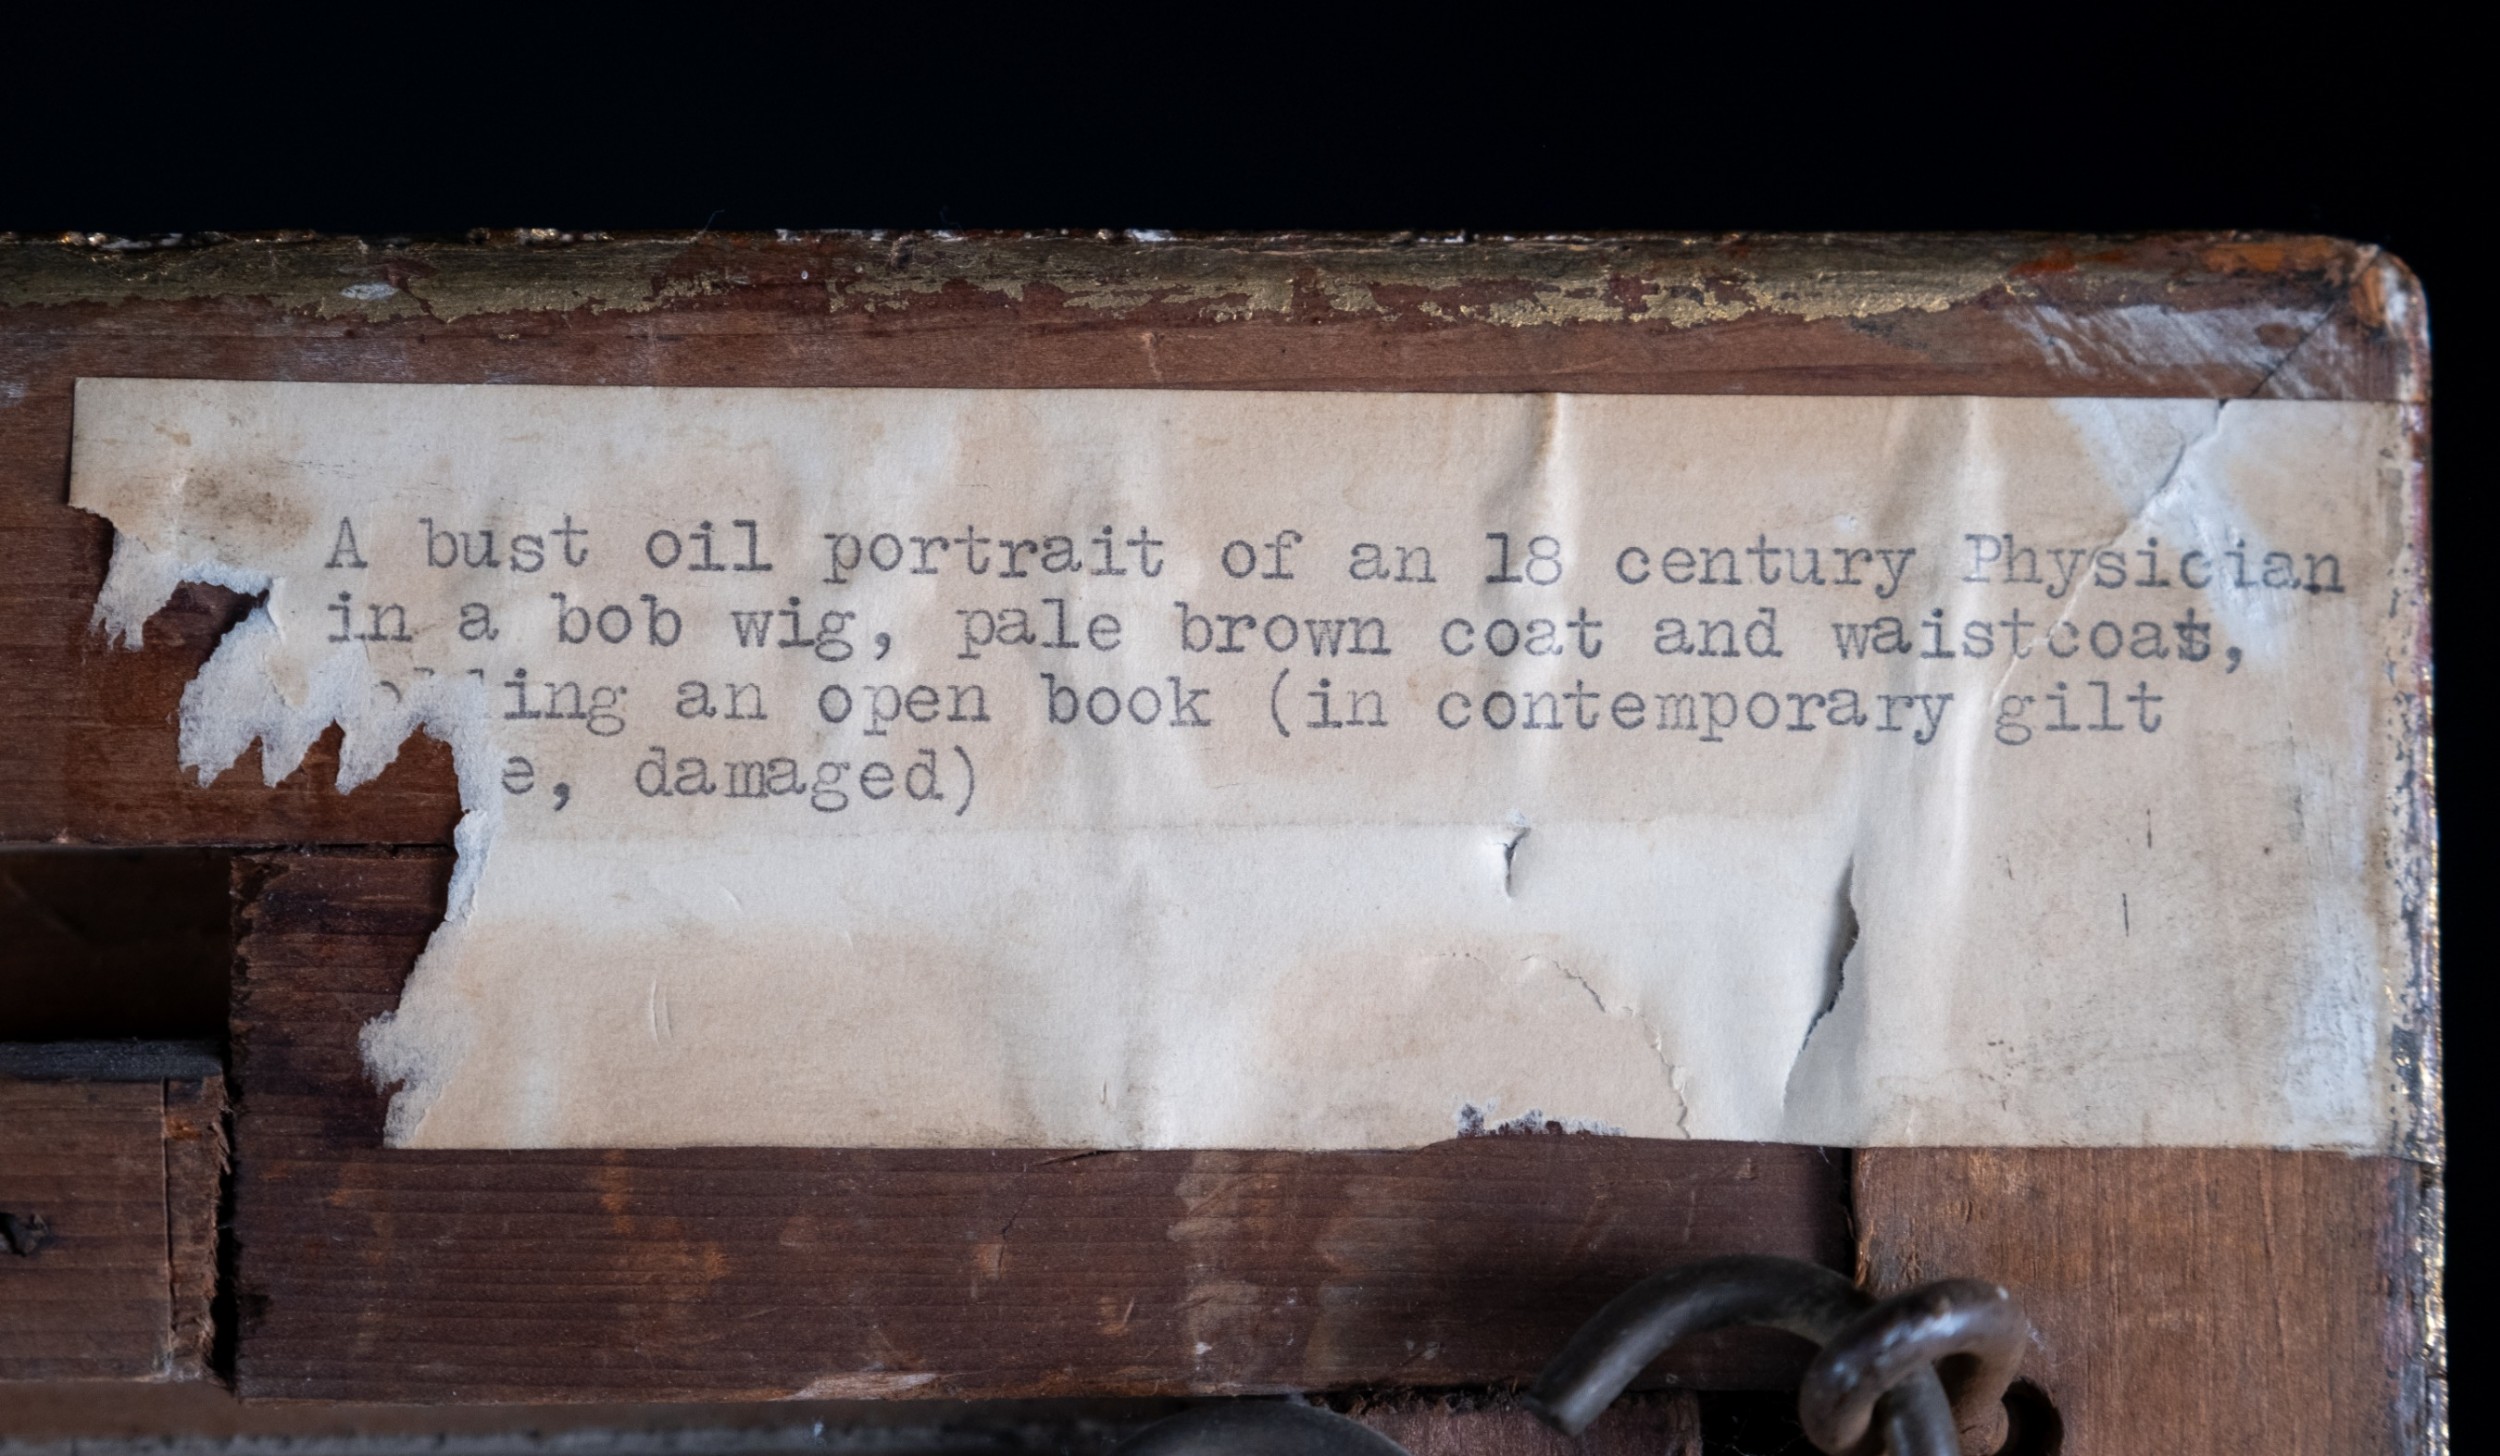 A bust oil portrait of an 18 century Physician
in a bob wig, pale brown coat and waistcoat,
an open book (in contemporary gilt
damaged)